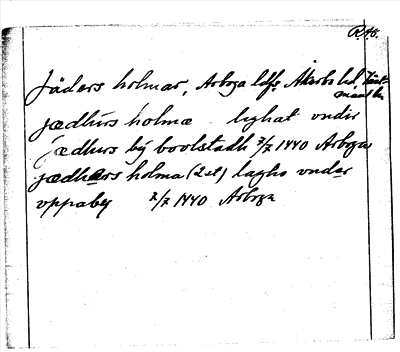 R. 48.
Jäders holmar, Arboga ldfs. Åkerbo hd, Väst-
manl. l.
jædhurs holmæ lyhat vndir
jædhurs by boolstadh 7/7 1440 Arboga
jædhærs holma (2 st) lagho vnder
vppaby 7/7 1440 Arboga